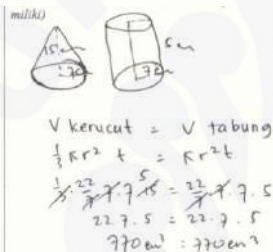 miliki)
15 cm
7 cm
5 cm
7 cm
V kerucut = V tabung
1/3 πr² t = πr² t
1/3 . 22/7 . 7 . 7 . 15 5 = 22/7 . 7 . 7 . 5
22 . 7 . 5 = 22 . 7 . 5
770 cm³ = 770 cm³